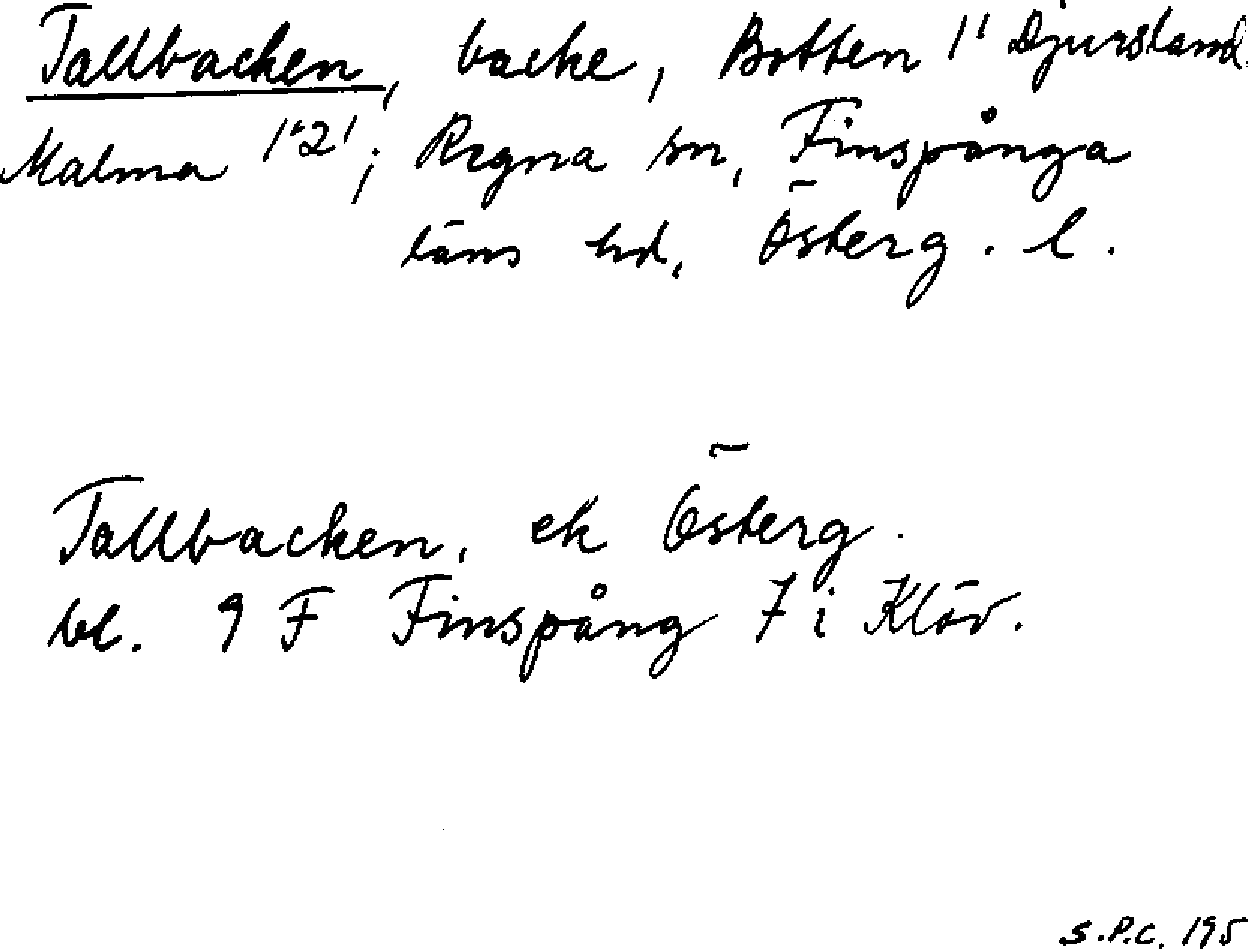 Tallbacken, backe, Botten 1¹ Djursland
Malma 1¹2¹; Regna sn, Finspånga
läns hd, Österg. l.
Tallbacken, ek Österg.
bl. 9 F Finspång 7 i Klöv.
S.P.C. 195